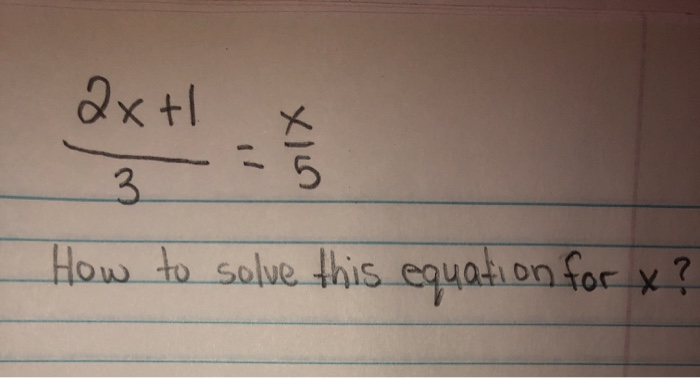 2x+1/3 = x/5
How to solve this equation for x?